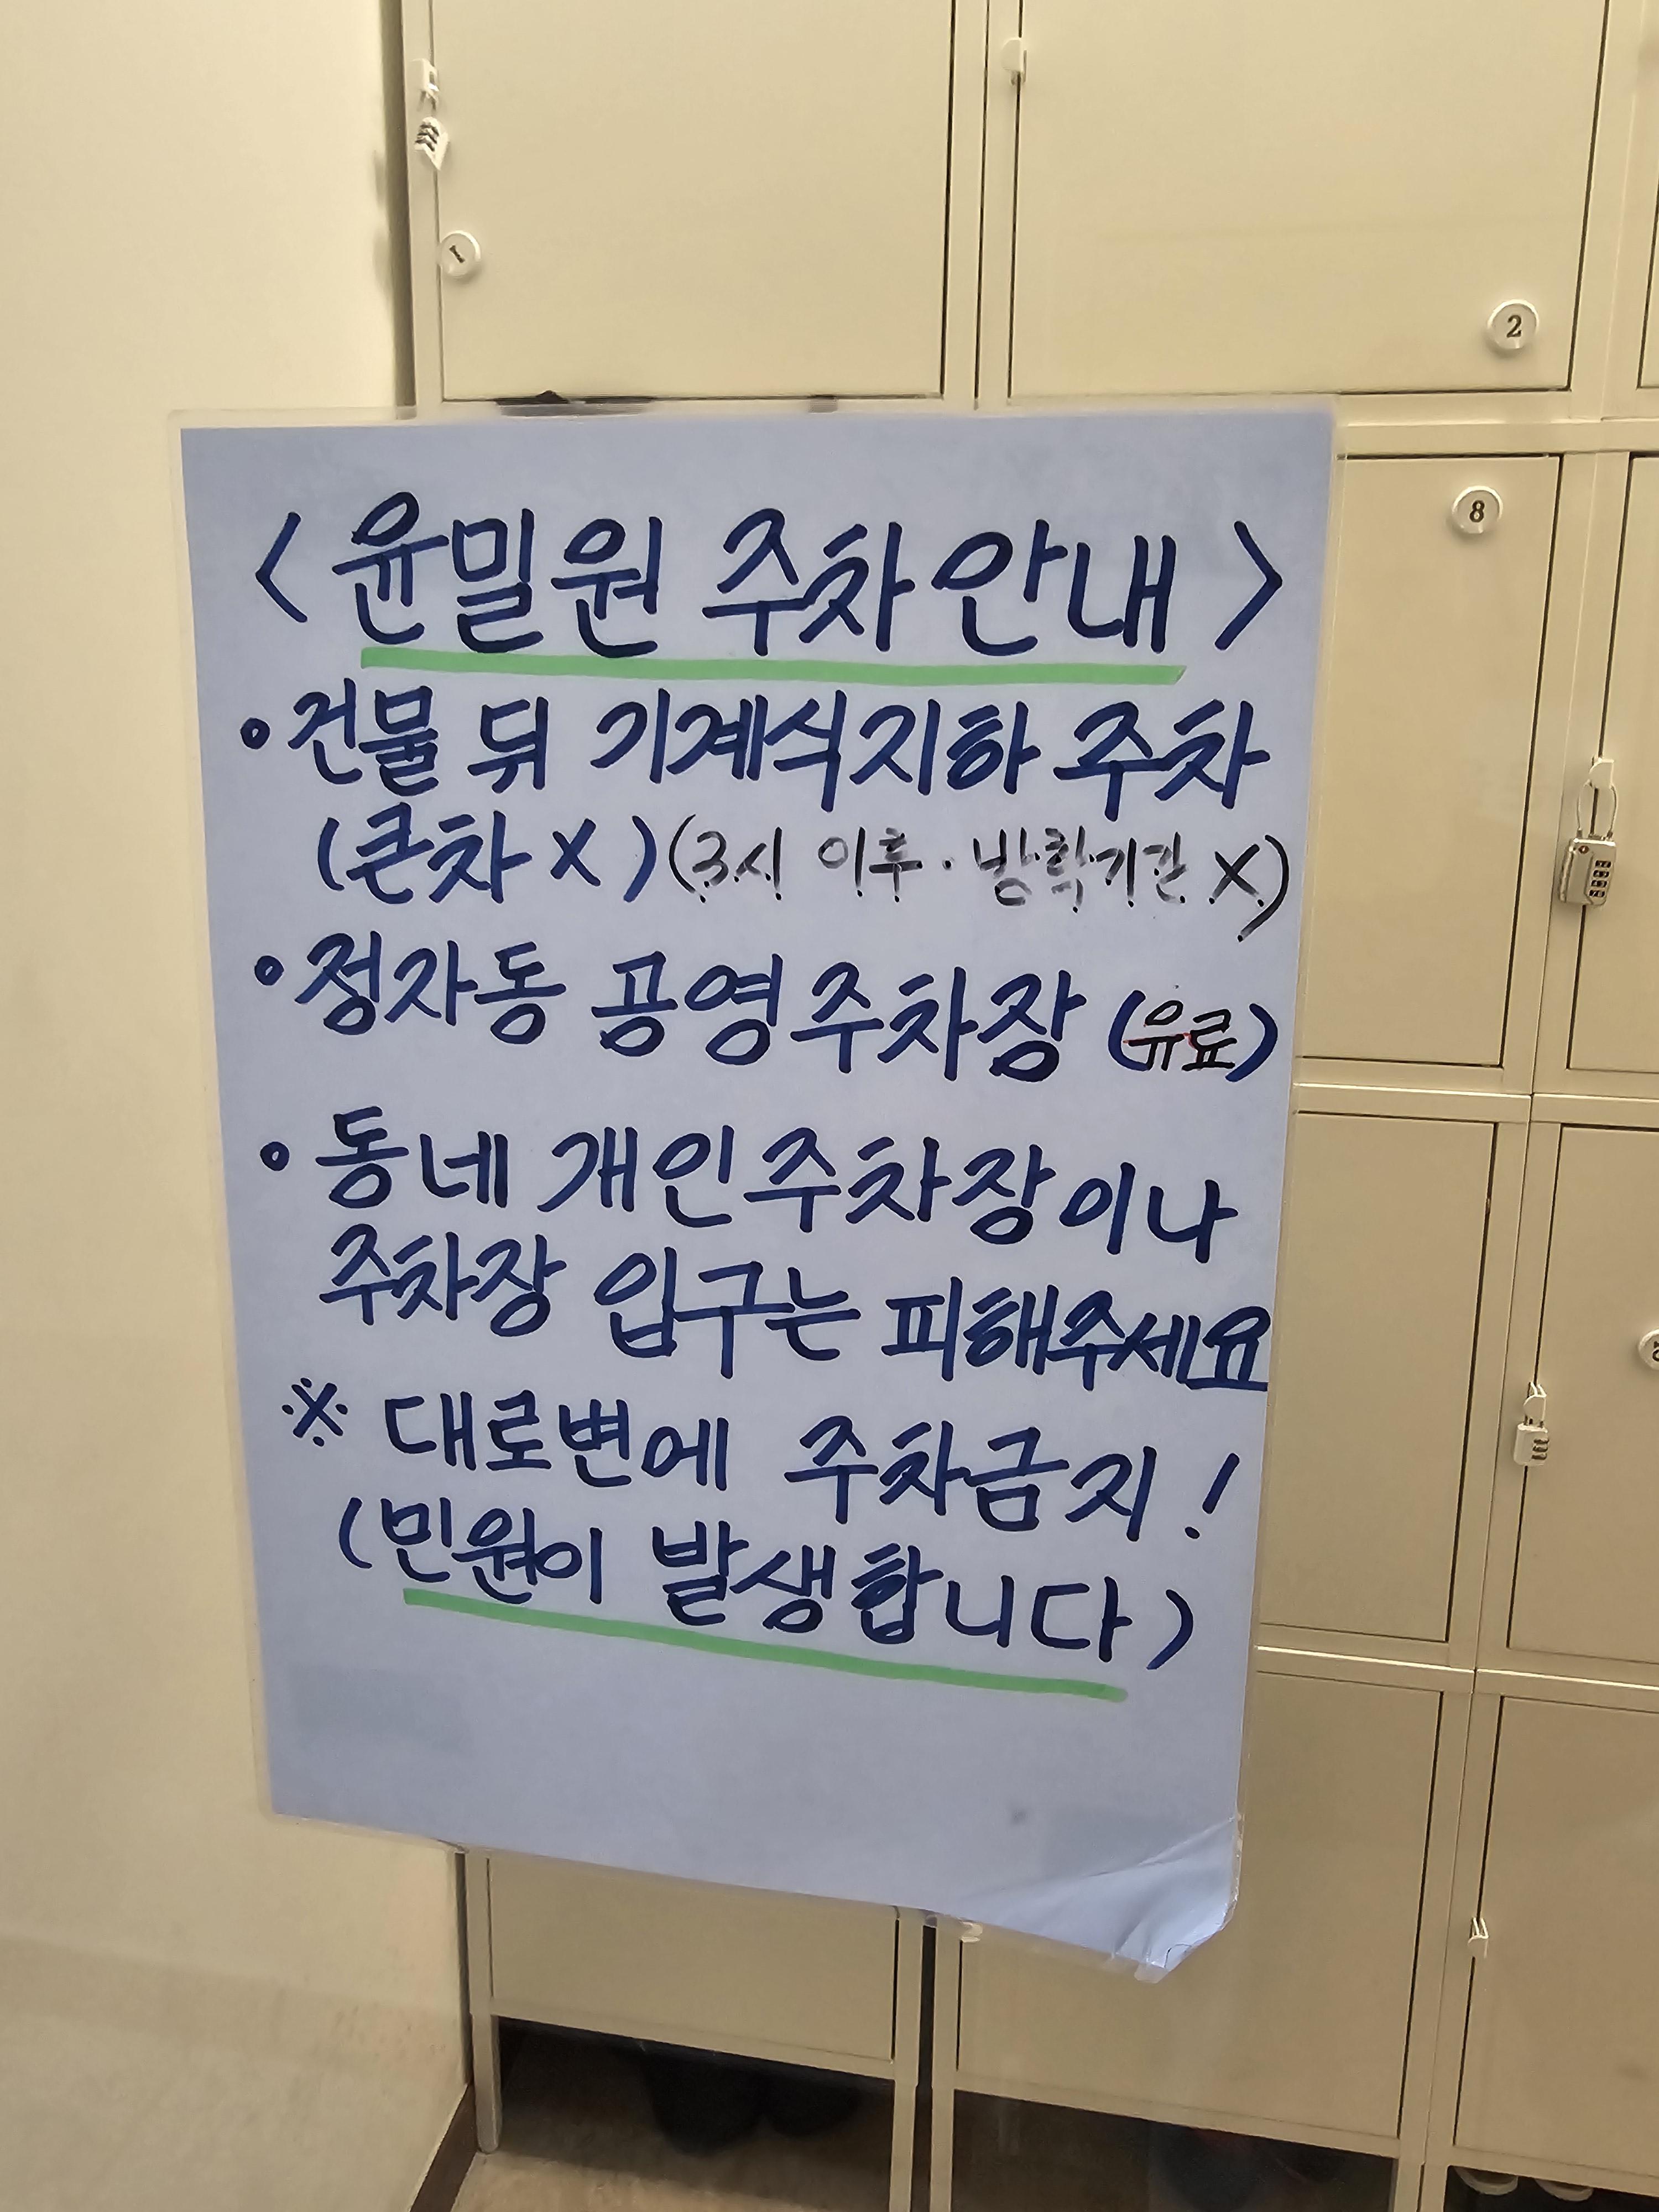 1
2
8
< 윤밀원 주차안내 >
• 건물 뒤 기계식지하 주차
(큰차 X) (3시 이후 · 방학기간 X)
• 정자동 공영주차장 (유료)
• 동네 개인주차장이나
주차장 입구는 피해주세요
※ 대로변에 주차금지!
(민원이 발생합니다)